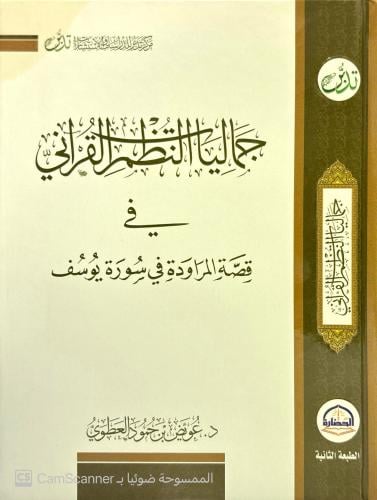 مركز تدبر للدراسات والاستشارات تدبر
جماليات النظم القرآني
في
قصة المراودة في سورة يوسف
د. عويض بن حمود العطوي
تدبر
جماليات النظم القرآني
الحضارة
الطبعة الثانية
الممسوحة ضوئيا بـ CamScanner
CS